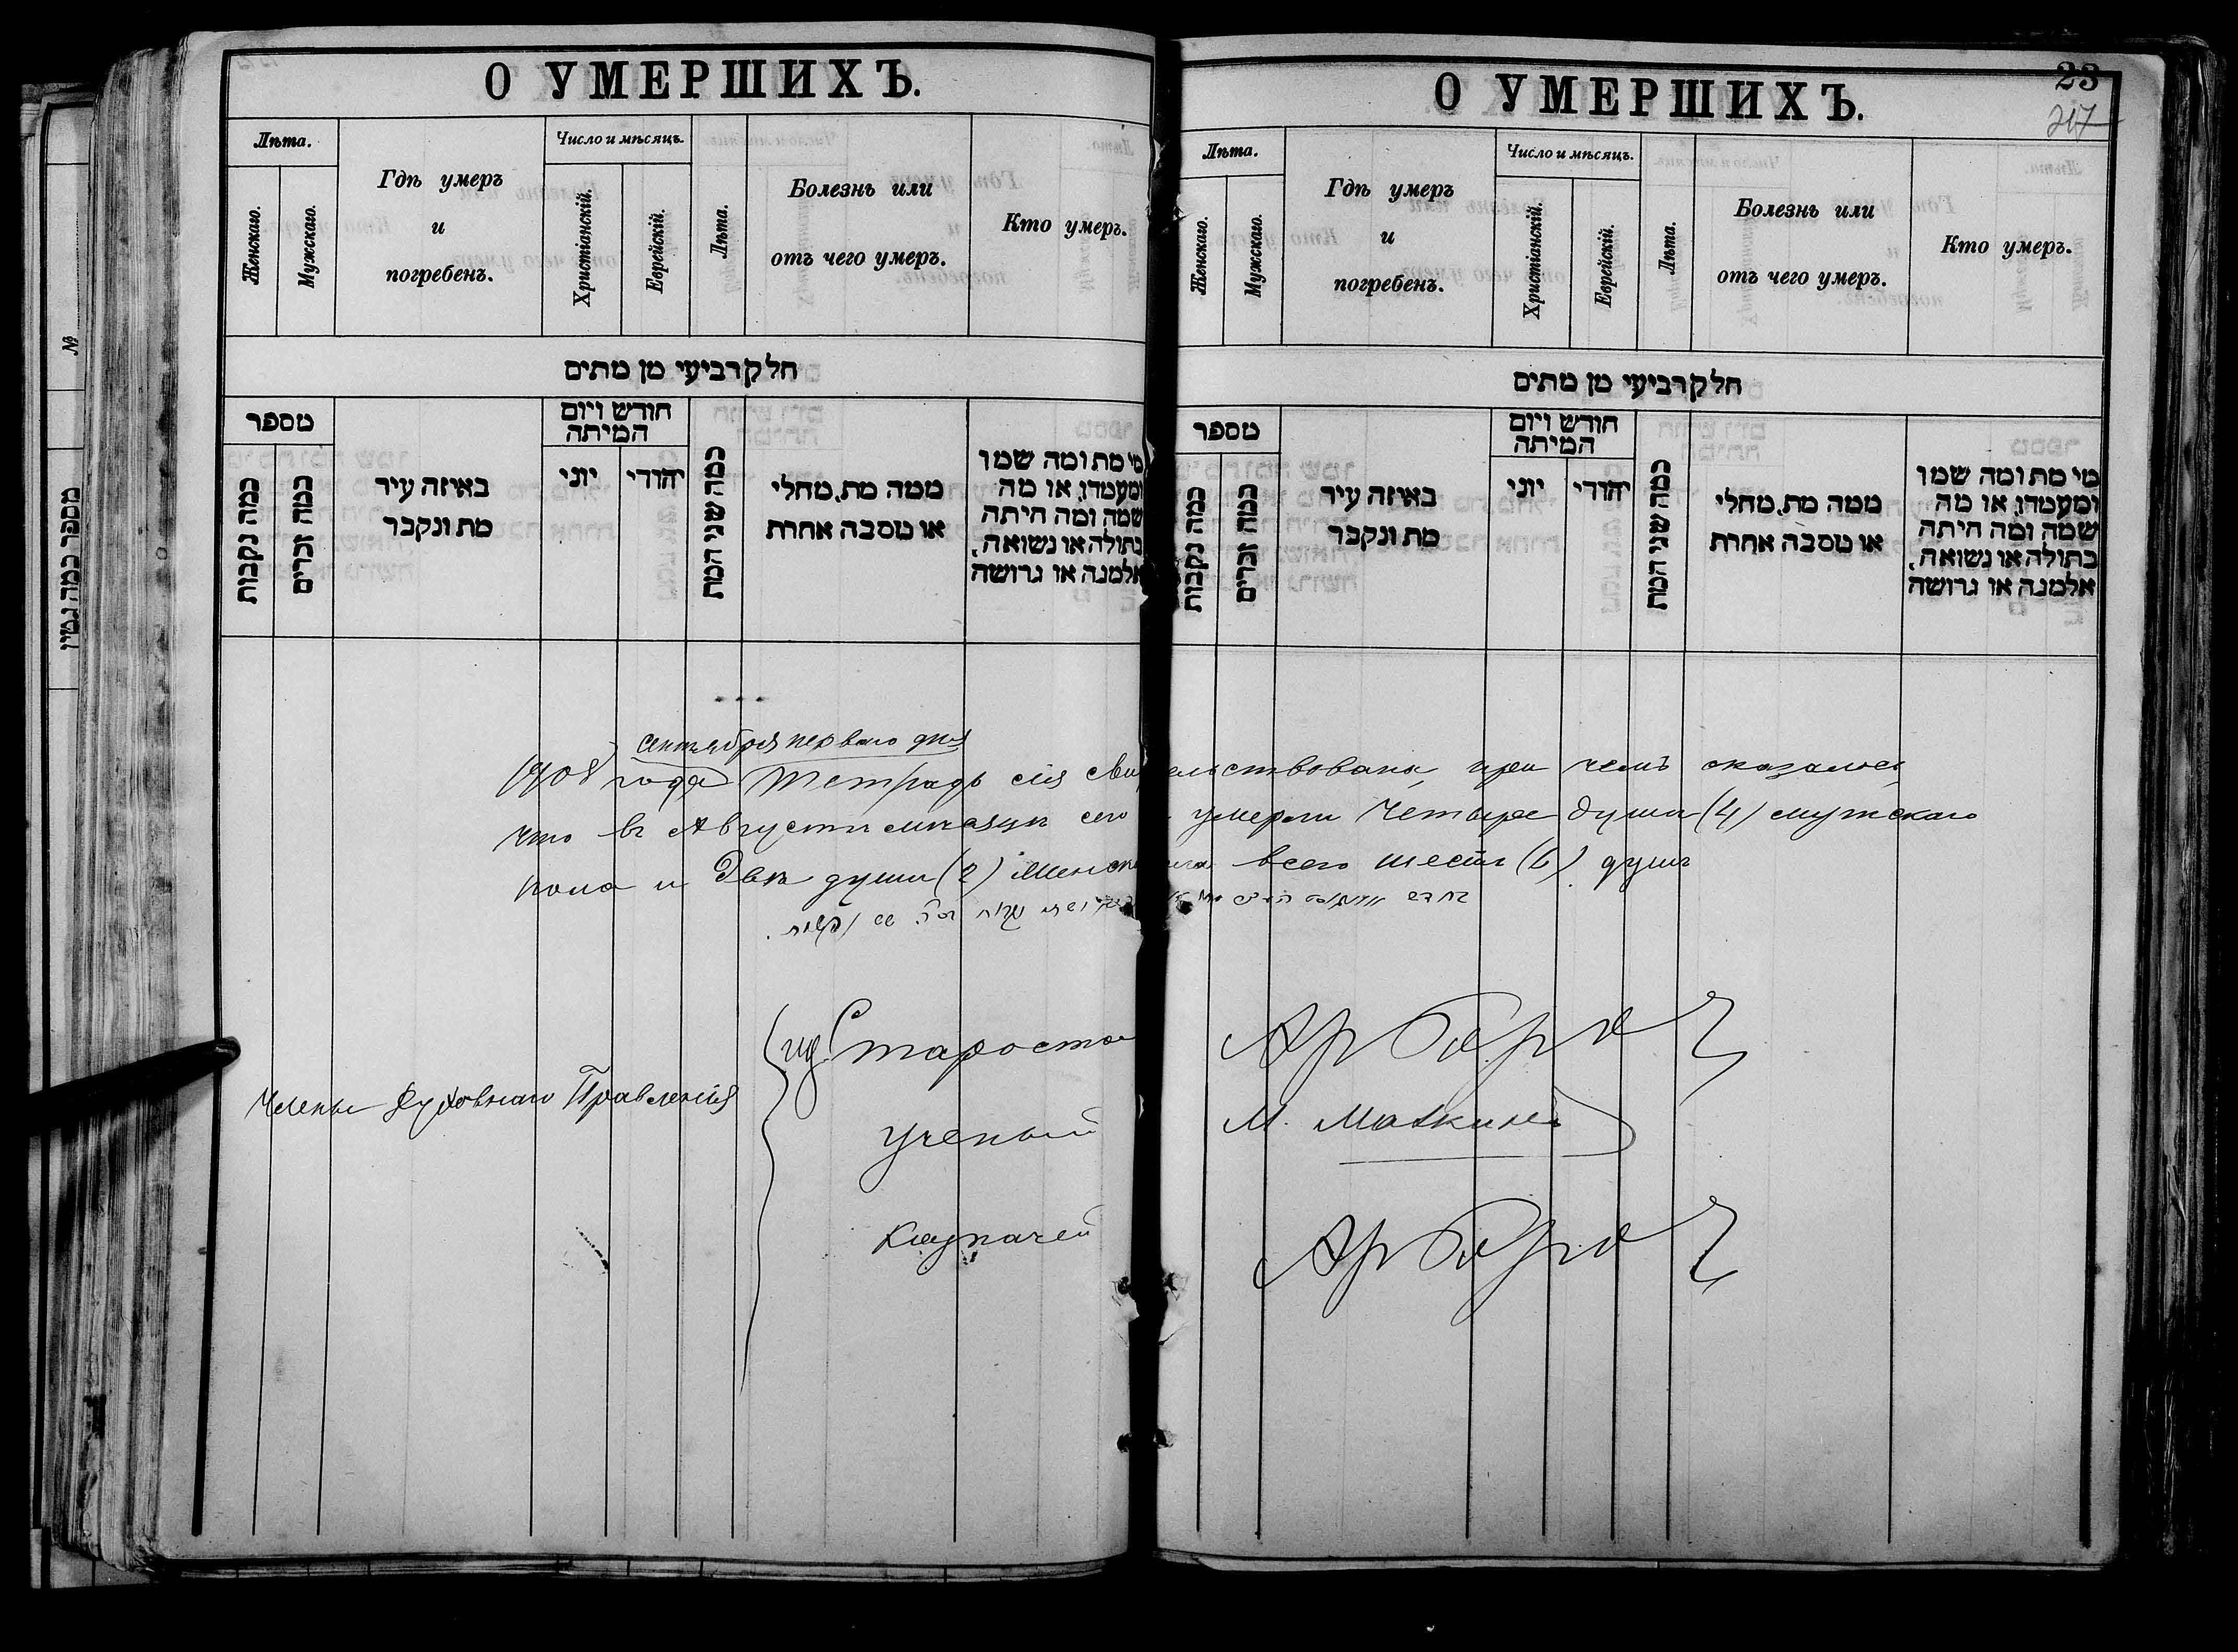 О УМЕРШИХЪ.
Лѣта.
Женскаго.
Мужскаго.
Гдѣ умеръ
и
погребенъ.
Число и мѣсяцъ.
Христіанскій.
Еврейскій.
Лѣта.
Болезнь или
отъ чего умеръ.
Кто умеръ.
חלק רביעי מן מתים
מספר
כמה נקבות
כמה זכרים
באיזה עיר
מת ונקבר
חודש ויום
המיתה
יוני
יהודי
כמה שני המת
ממה מת, מחלי
או מסבה אחרת
מי מת ומה שמו
ומעמדו, או מה
שמה ומה היתה
בתולה או נשואה,
אלמנה או גרושה
О УМЕРШИХЪ.
23
217
Лѣта.
Женскаго.
Мужскаго.
Гдѣ умеръ
и
погребенъ.
Число и мѣсяцъ.
Христіанскій.
Еврейскій.
Лѣта.
Болезнь или
отъ чего умеръ.
Кто умеръ.
חלק רביעי מן מתים
מספר
כמה נקבות
כמה זכרים
באיזה עיר
מת ונקבר
חודש ויום
המיתה
יוני
יהודי
כמה שני המת
ממה מת, מחלי
או מסבה אחרת
מי מת ומה שמו
ומעמדו, או מה
שמה ומה היתה
בתולה או נשואה,
אלמנה או גרושה
№
מספר כמה גטין
сентября перваго дня
1908 года Тетрадь сія свидѣтельствована, при чемъ оказалось
что въ Августѣ мѣсяцѣ сего умерли Четыре души (4) мужскаго
пола и Двѣ души (2) женск всего шесть (6) душъ
Члены Духовнаго Правленія
ид. Староста
ученый
М. Маткинъ
казначей